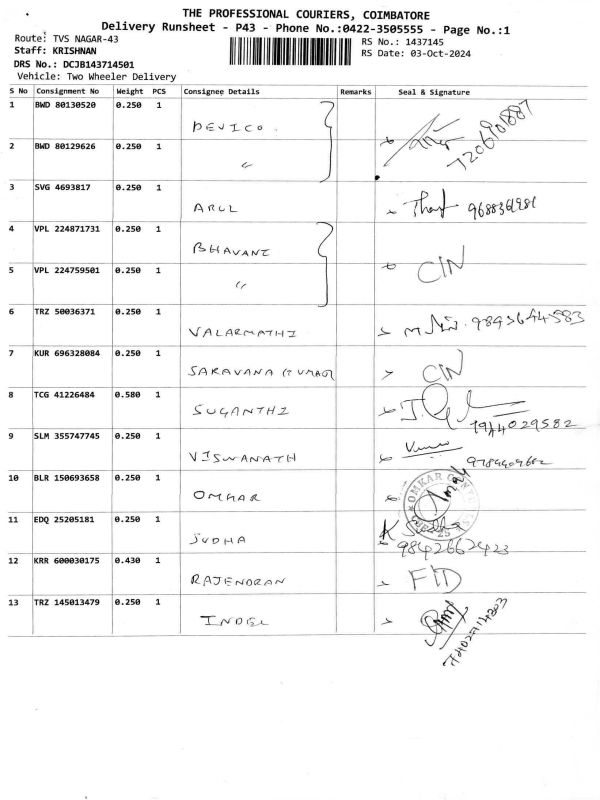 THE PROFESSIONAL COURIERS, COIMBATORE
Delivery Runsheet - P43 - Phone No.:0422-3505555 - Page No.:1
Route: TVS NAGAR-43 RS No.: 1437145
Staff: KRISHNAN RS Date: 03-Oct-2024
DRS No.: DCJB143714501
Vehicle: Two Wheeler Delivery
S No Consignment No Weight PCS Consignee Details Remarks Seal & Signature
1 BWD 80130520 0.250 1 DEVICO
2 BWD 80129626 0.250 1 "
3 SVG 4693817 0.250 1 ARUL
4 VPL 224871731 0.250 1 BHAVANI
5 VPL 224759501 0.250 1 " CIN
6 TRZ 50036371 0.250 1 VALARMATHI
7 KUR 696328084 0.250 1 SARAVANA KUMAR CIN
8 TCG 41226484 0.580 1 SUGANTHI
9 SLM 355747745 0.250 1 VISWANATH
10 BLR 150693658 0.250 1 OMKAR OMKAR
11 EDQ 25205181 0.250 1 SUDHA K Sudha
9842662423
12 KRR 600030175 0.430 1 RAJENDRAN FID
13 TRZ 145013479 0.250 1 INDEL